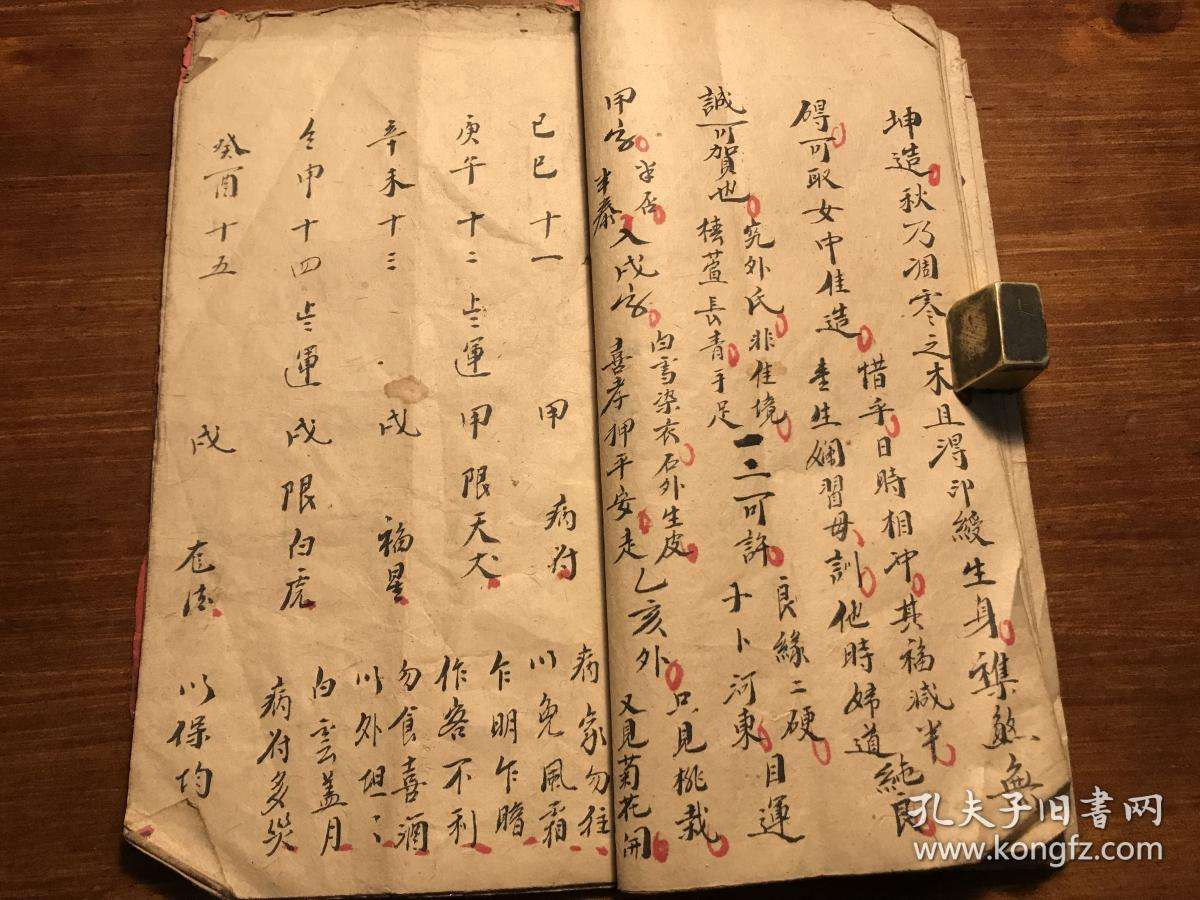 坤造秋乃凋寒之木且得印綬生身雜煞無
碍可取女中佳造惜乎日時相冲其福減半
生嫻習母訓他時婦道純良
誠可賀也究外氏非佳境良緣二硬
椿萱長青手足一二可許卜河東目運
甲字半否半泰入戌字白雪染衣石外生皮
喜孝押平安走乙亥外只見桃栽又見菊花開
己巳十一 甲 病符 病家勿往 以免風霜
庚午十二 上運甲限天犬 乍明乍暗 作客不利
辛未十三 戌 福星 勿食喜酒 以外坦坦
壬申十四 上運戌限白虎 白雲盖月 病符多災
癸酉十五 戌 以保均
孔夫子旧书网
www.kongfz.com